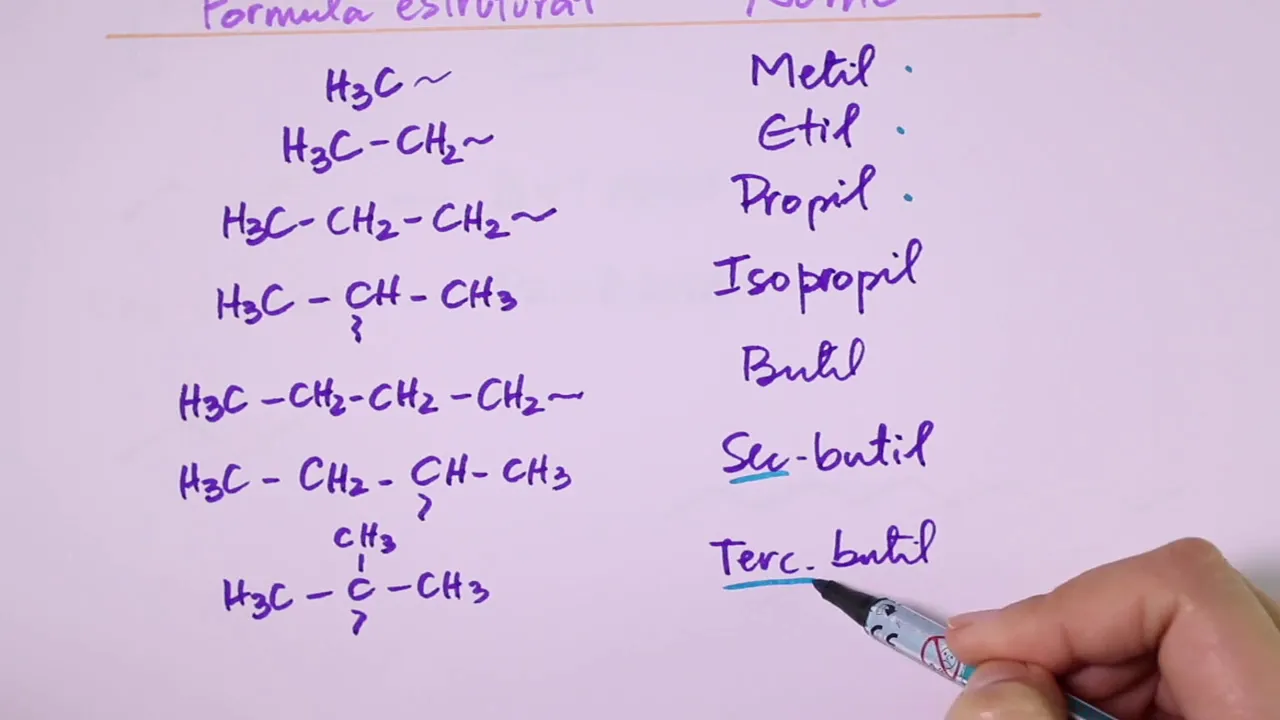 Fórmula estrutural Nome
H3C~ Metil
H3C-CH2~ Etil
H3C-CH2-CH2~ Propil
H3C-CH-CH3 Isopropil
H3C-CH2-CH2-CH2~ Butil
H3C-CH2-CH-CH3 Sec-butil
CH3
H3C-C-CH3 Terc-butil